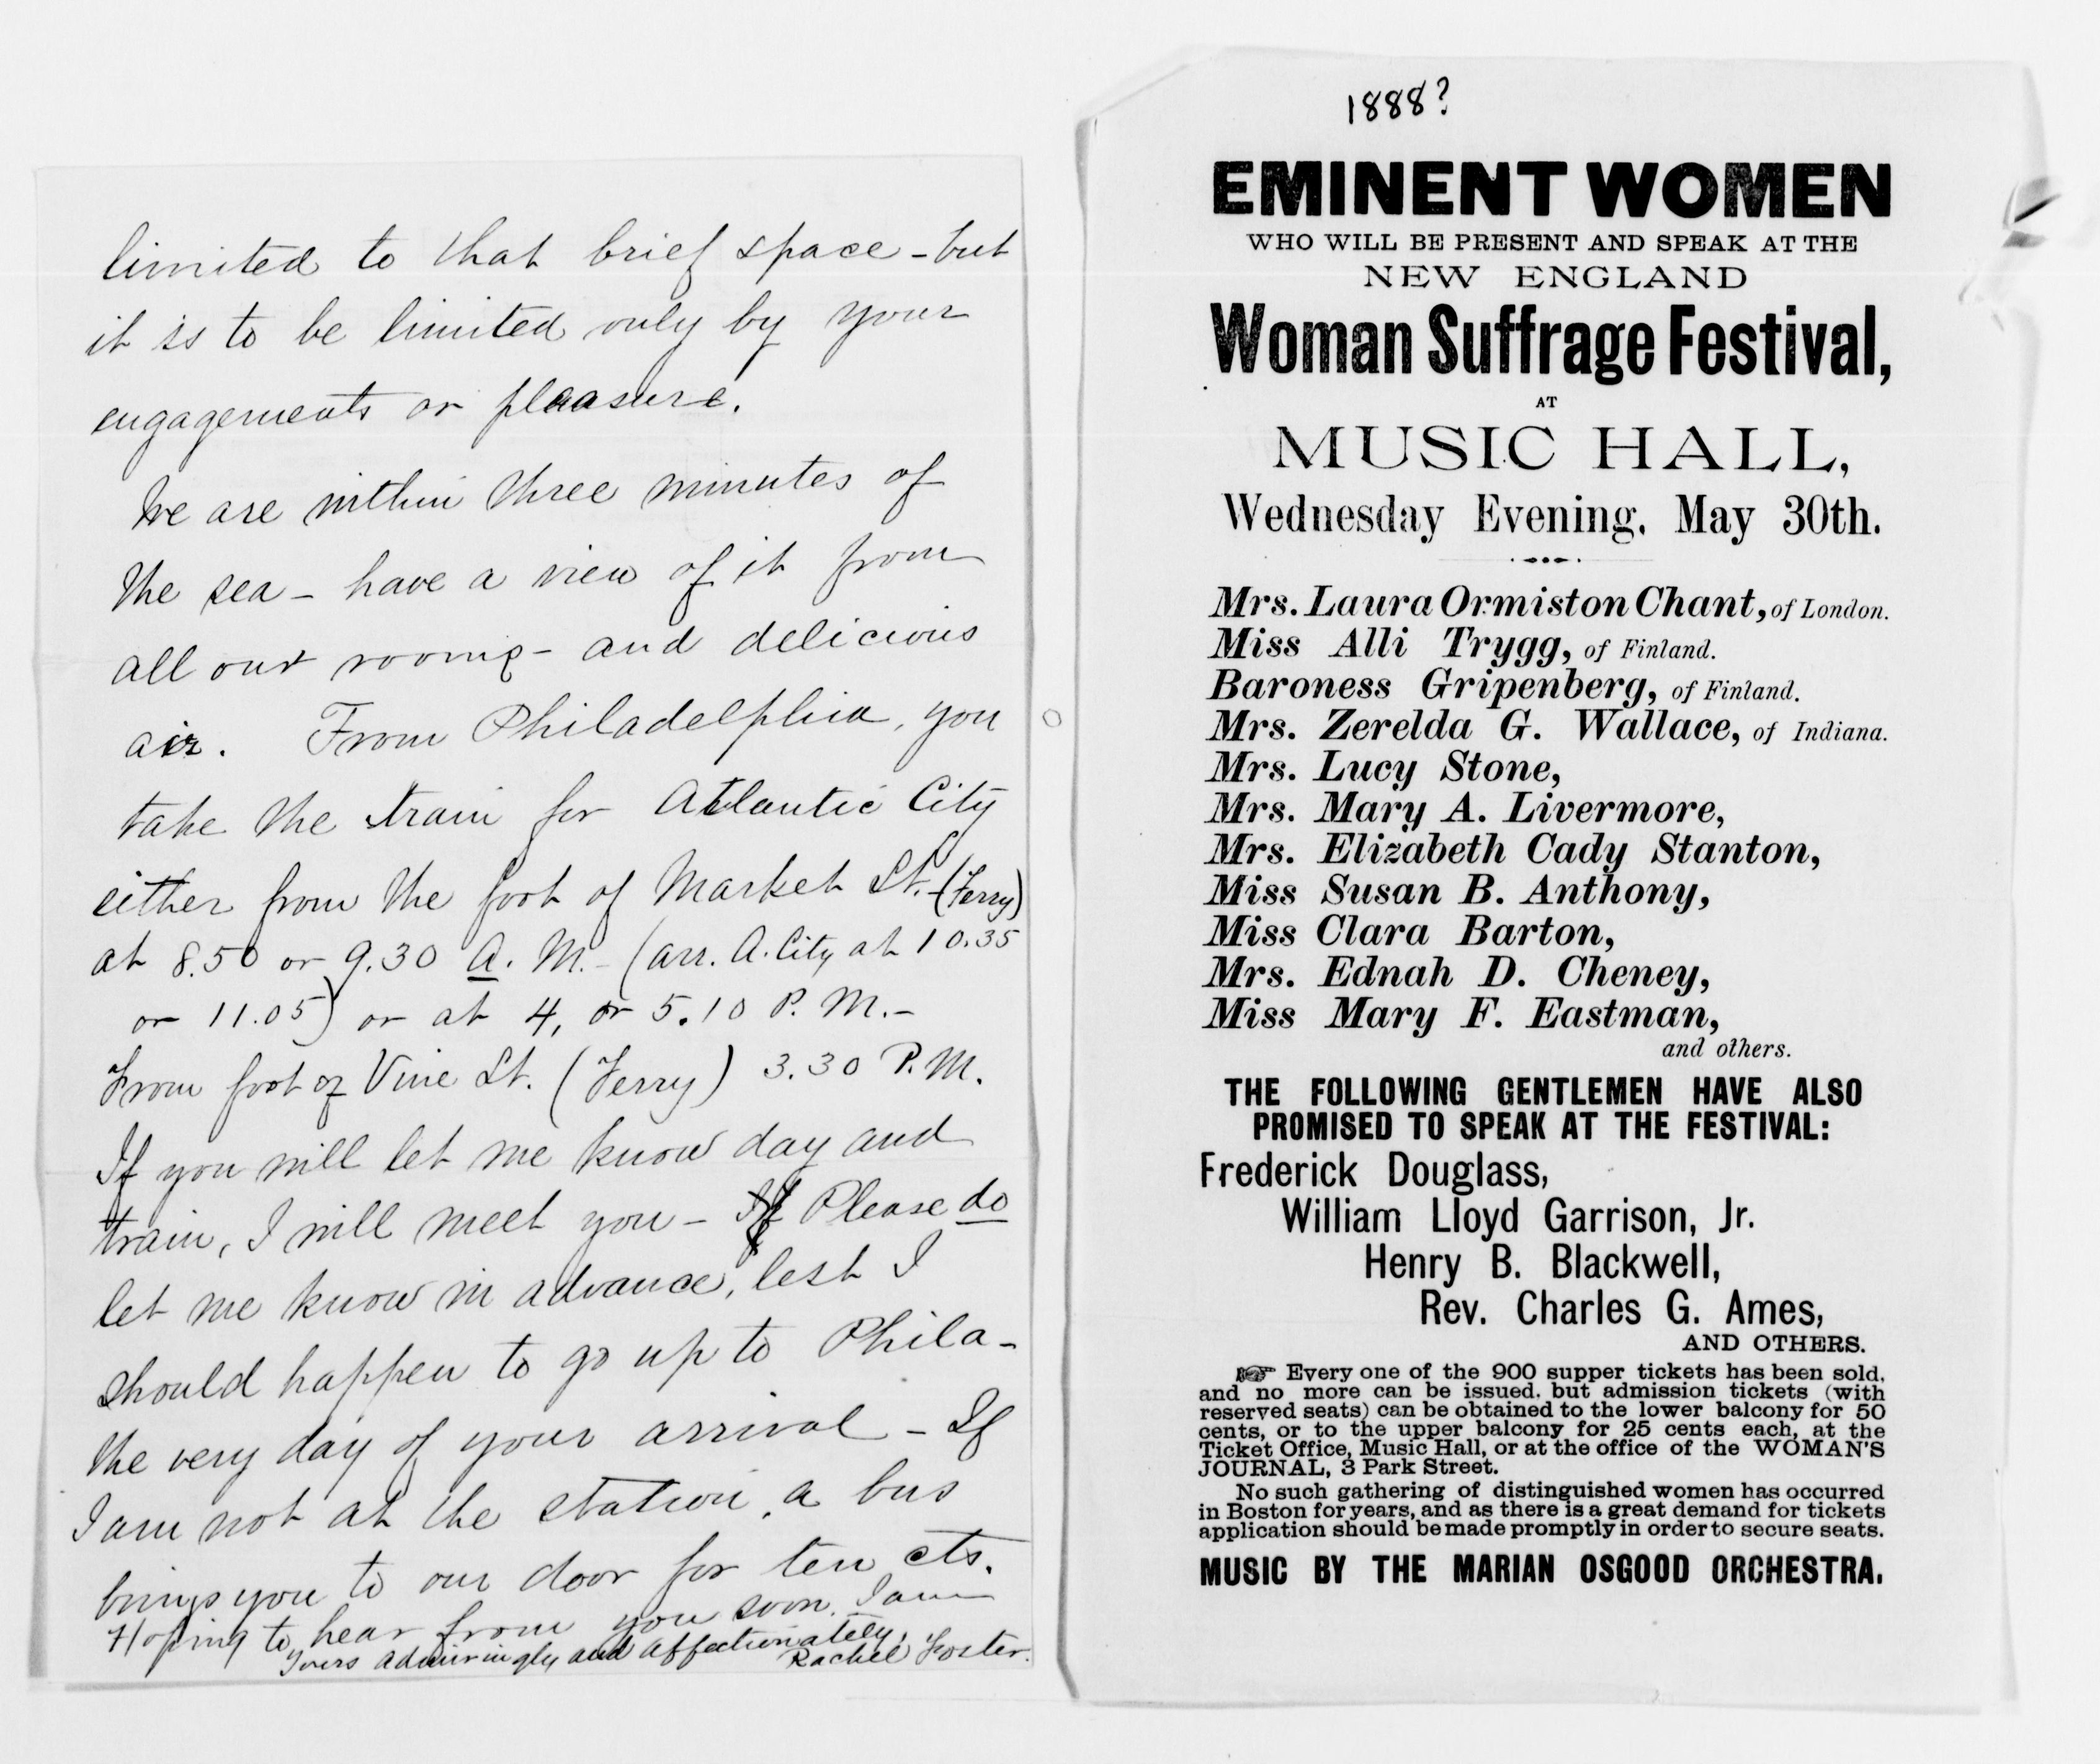 limited to that brief space - but
it is to be limited only by your
engagements or pleasure.
We are within three minutes of
the sea - have a view of it from
all our rooms - and delicious
air. From Philadelphia, you
take the train for Atlantic City
either from the foot of Market St. (Ferry)
at 8.50 or 9.30 A. M. - (arr. A. City at 10.35
or 11.05) or at 4, or 5.10 P. M. -
From foot of Vine St. (Ferry) 3.30 P.M.
If you will let me know day and
train, I will meet you - If Please do
let me know in advance, lest I
should happen to go up to Phila-
the very day of your arrival - If
I am not at the station, a bus
brings you to our door for ten cts.
Hoping to hear from you soon, I am
Yours admiringly and affectionately,
Rachel Foster.
1888?
EMINENT WOMEN
WHO WILL BE PRESENT AND SPEAK AT THE
NEW ENGLAND
Woman Suffrage Festival,
AT
MUSIC HALL,
Wednesday Evening, May 30th.
Mrs. Laura Ormiston Chant, of London.
Miss Alli Trygg, of Finland.
Baroness Gripenberg, of Finland.
Mrs. Zerelda G. Wallace, of Indiana.
Mrs. Lucy Stone,
Mrs. Mary A. Livermore,
Mrs. Elizabeth Cady Stanton,
Miss Susan B. Anthony,
Miss Clara Barton,
Mrs. Ednah D. Cheney,
Miss Mary F. Eastman,
and others.
THE FOLLOWING GENTLEMEN HAVE ALSO
PROMISED TO SPEAK AT THE FESTIVAL:
Frederick Douglass,
William Lloyd Garrison, Jr.
Henry B. Blackwell,
Rev. Charles G. Ames,
AND OTHERS.
☞ Every one of the 900 supper tickets has been sold,
and no more can be issued, but admission tickets (with
reserved seats) can be obtained to the lower balcony for 50
cents, or to the upper balcony for 25 cents each, at the
Ticket Office, Music Hall, or at the office of the WOMAN'S
JOURNAL, 3 Park Street.
No such gathering of distinguished women has occurred
in Boston for years, and as there is a great demand for tickets
application should be made promptly in order to secure seats.
MUSIC BY THE MARIAN OSGOOD ORCHESTRA.